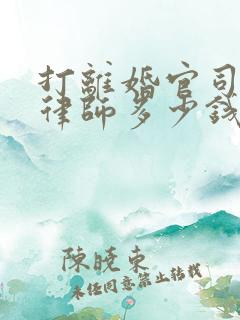 打離婚官司
律師多少錢
陳曉東
未經同意禁止轉載